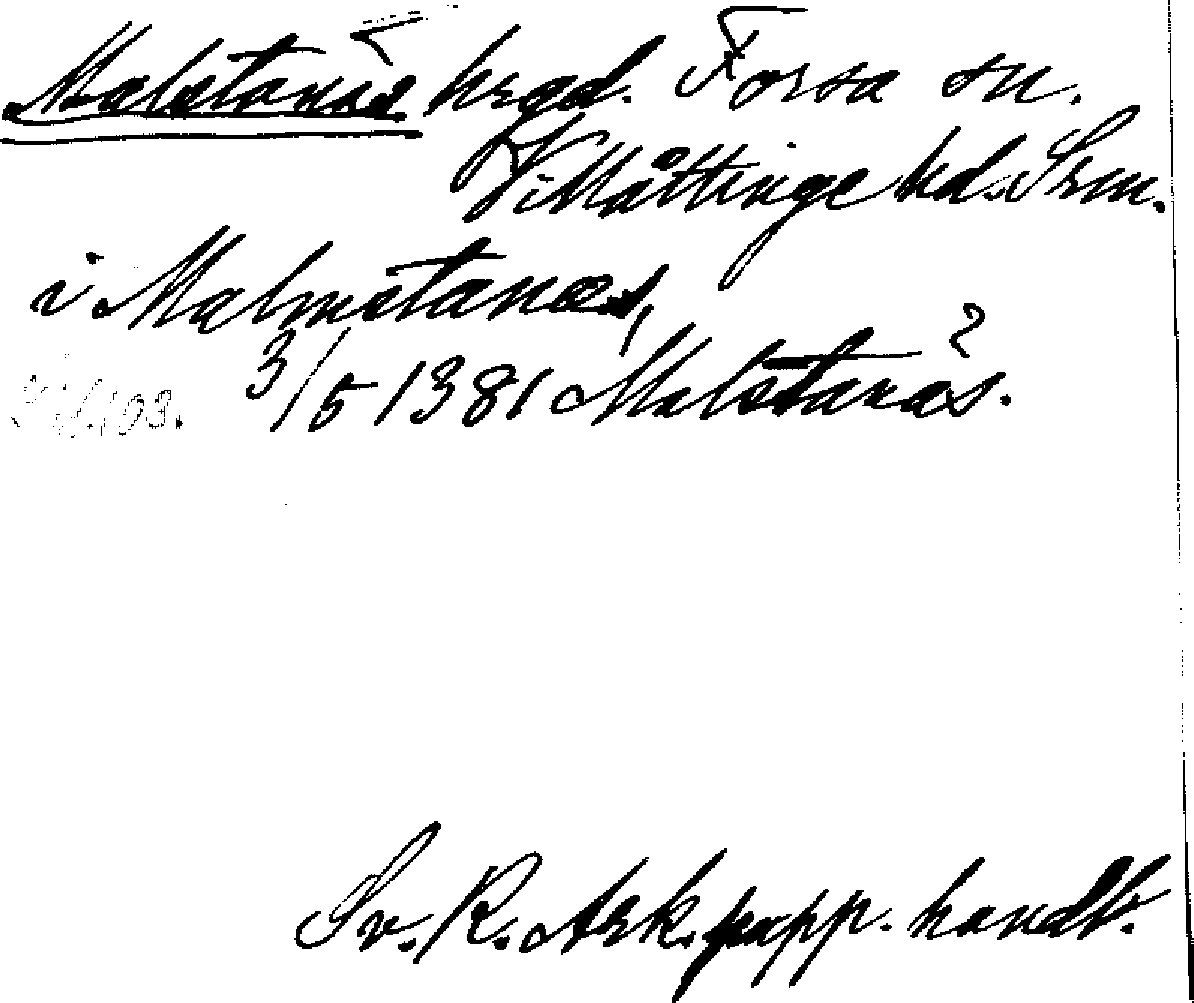 Malstanäs hrgd. Forsa sn.
Villåttinge hd. Srm.
i Malmstanæs,
3/5 1381 Malstanäs.
Sv. R. Ark. papp. handl.